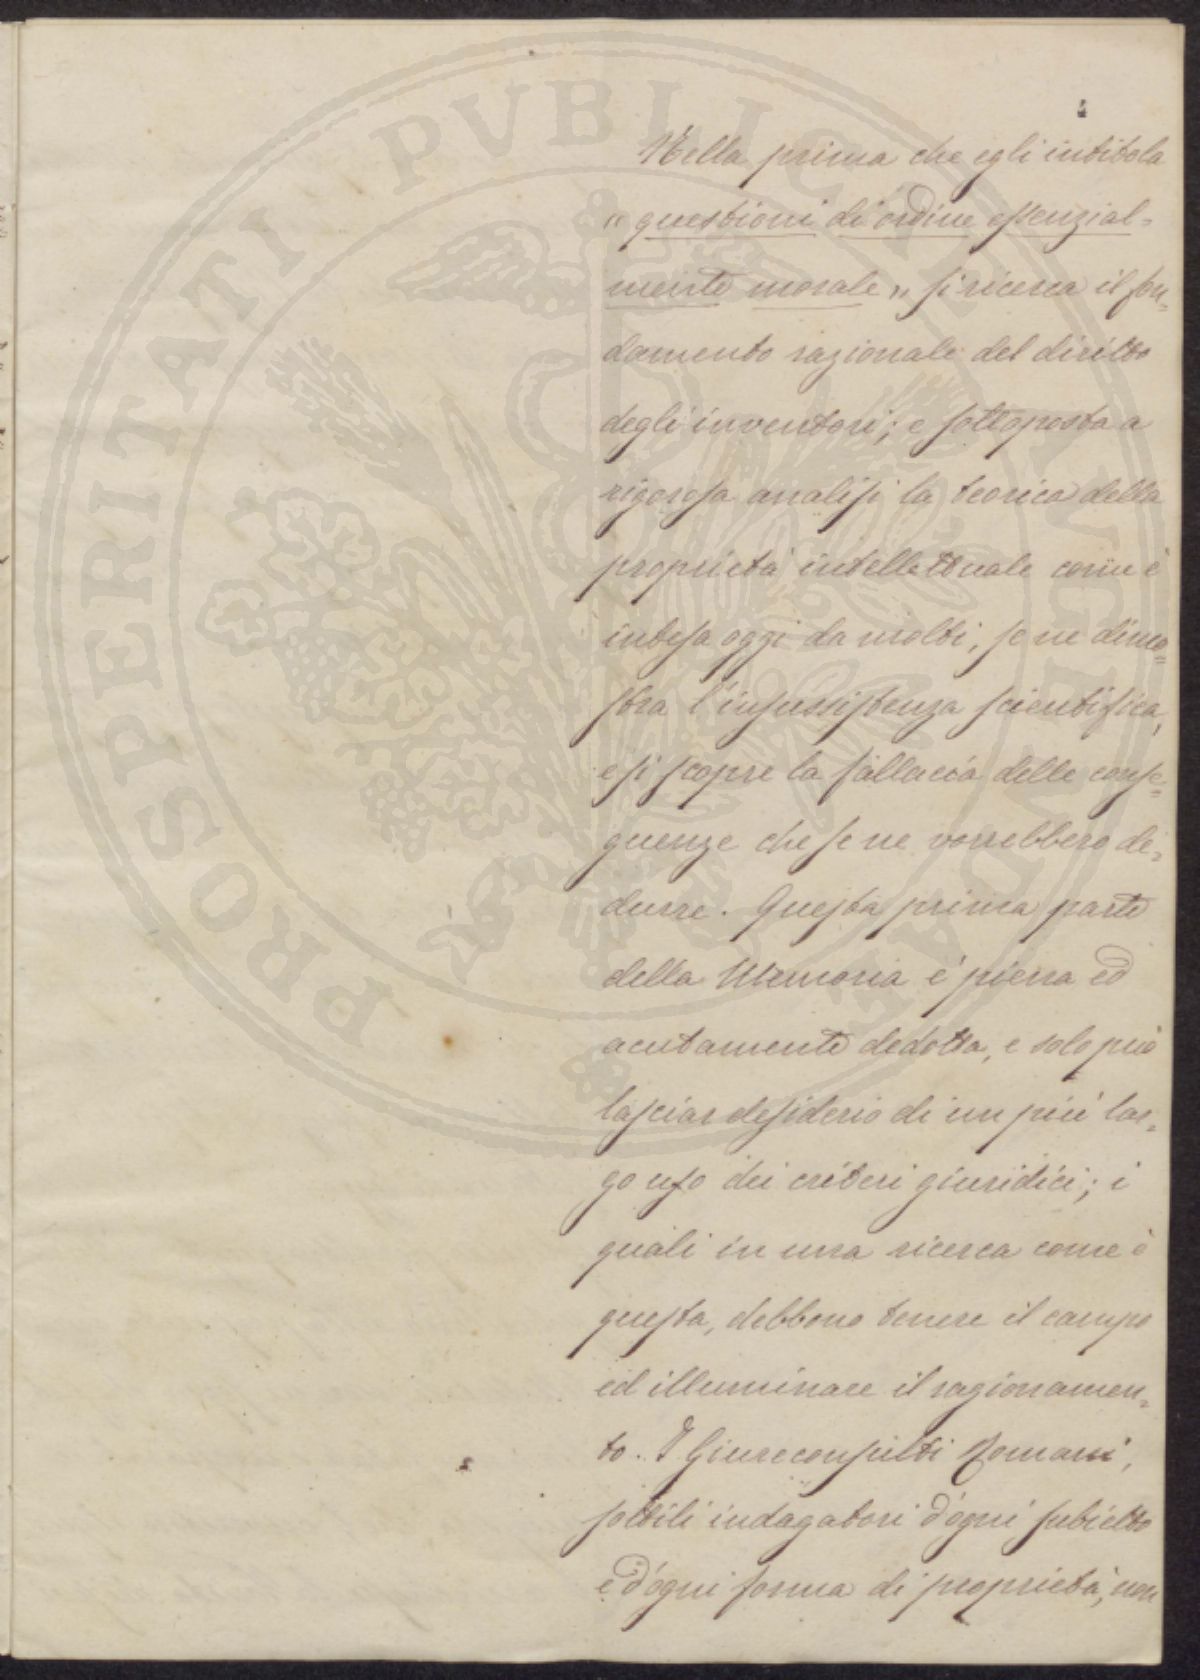 PROSPERITATI PVBLICAE AVGENDAE
Nella prima che egli intitola
"questioni di ordine essenzial=
mente morale" si ricerca il fon=
damento razionale del diritto
degli inventori; e sottoposta a
rigorosa analisi la teorica della
proprietà intellettuale com'è
intesa oggi da molti, se ne dimo=
stra l'insussistenza scientifica,
e si scopre la fallacia delle conse=
guenze che se ne vorrebbero de=
durre. Questa prima parte
della Memoria è piena ed
acutamente dedotta, e solo può
lasciar desiderio di un più lar=
go uso dei criteri giuridici; i
quali in una ricerca come è
questa, debbono tenere il campo
ed illuminare il ragionamen=
to. I Giureconsulti Romani,
sottili indagatori d'ogni subietto
e d'ogni forma di proprietà, non